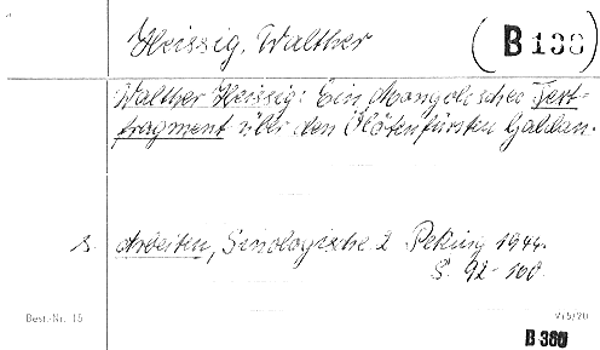 Heissig, Walther
(B 138)
Walther Heissig: Ein Mongolisches Text-
fragment über den Ölötenfürsten Galdan.
s. Arbeiten, Sinologische 2 Peking 1944.
S. 92-100.
Best.-Nr. 15
V/5/20
B 380